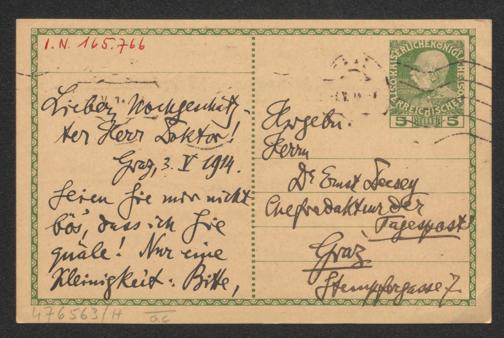 I.N. 165.766
Lieber, hochgeschätz-
ter Herr Doktor!
Graz, 3. V 1914.
Seien Sie mir nicht
bös, dass ich Sie
quäle! Nur eine
Kleinigkeit: Bitte,
KAISERLICHE KÖNIGLICHE
ÖSTERREICHISCHE
5 HELLER 5
Herrn
Dr Ernst Decsey
Chefredakteur der
Tagespost
Graz
Stempfergasse 7.
476563/H
ac